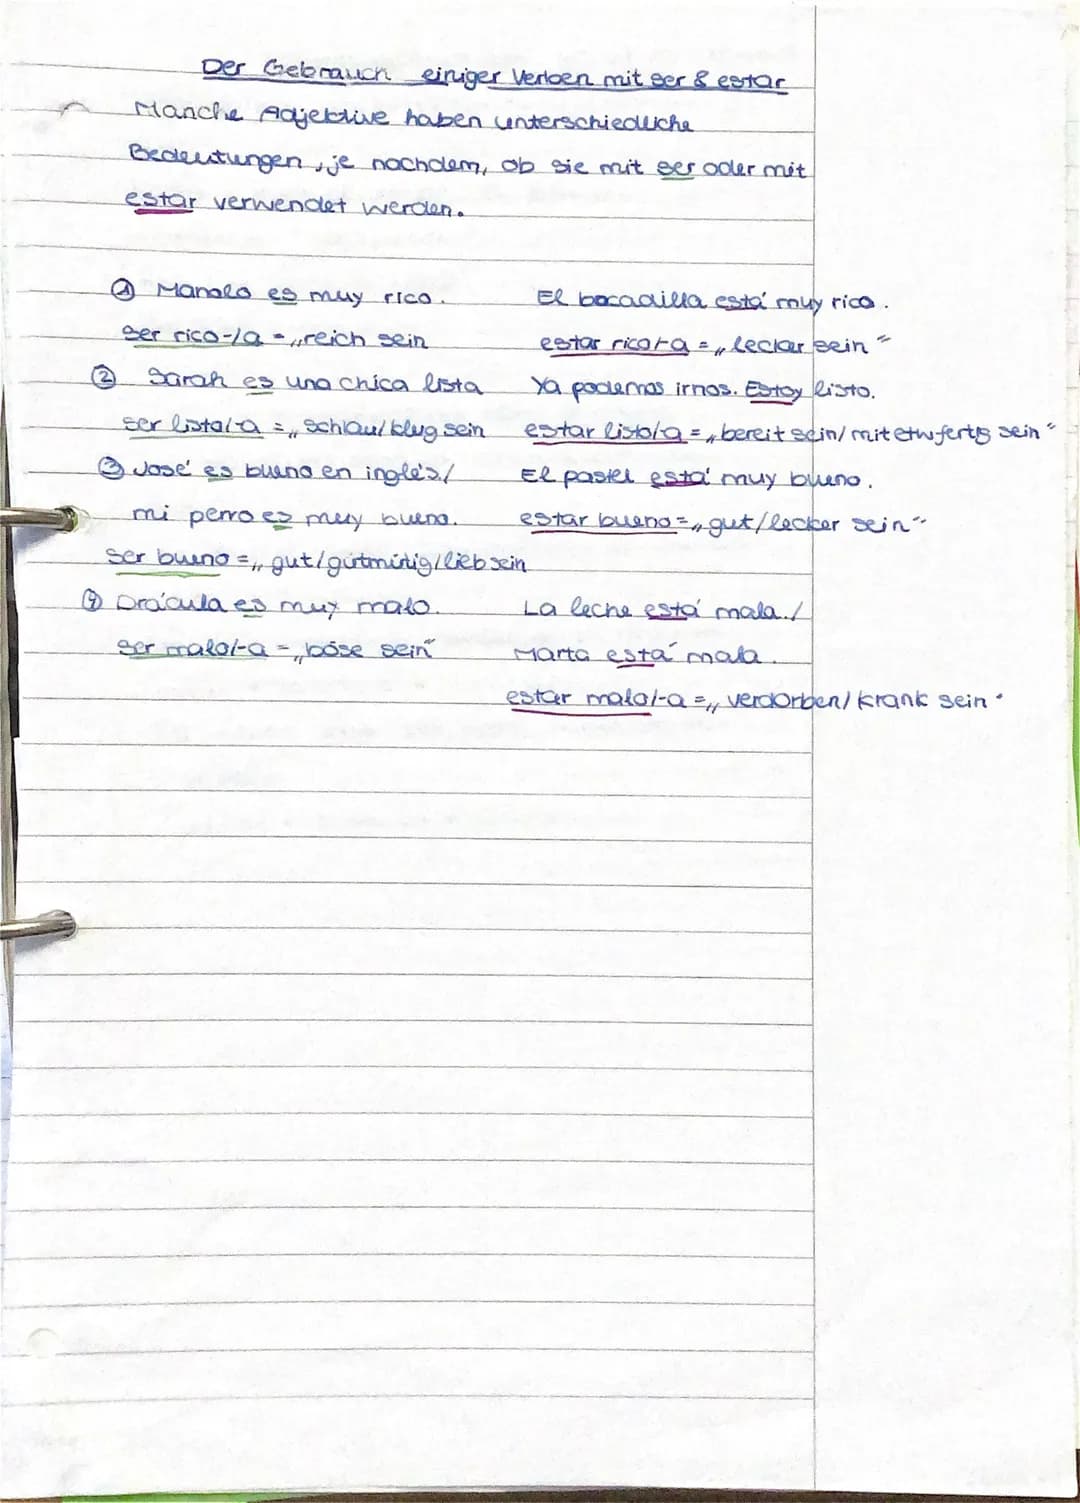 Der Gebrauch einiger Verben mit ser & estar
Manche Adjektive haben unterschiedliche
Bedeutungen, je nachdem, ob sie mit ser oder mit
estar verwendet werden.
① Manolo es muy rico. El bocadillo está muy rico.
ser rico-/a = „reich sein estar rico/-a = „lecker sein“
② Sarah es una chica lista Ya podemos irnos. Estoy listo.
ser listo/-a = „schlau/klug sein estar listo/-a = „bereit sein/mit etw fertig sein“
③ José es bueno en inglés./ El pastel está muy bueno.
mi perro es muy bueno. estar bueno = „gut/lecker sein“
ser bueno = „gut/gütmütig/lieb sein
④ Drácula es muy malo. La leche está mala./
ser malo/-a = „böse sein“ Marta está mala.
estar malo/-a = „verdorben/krank sein“